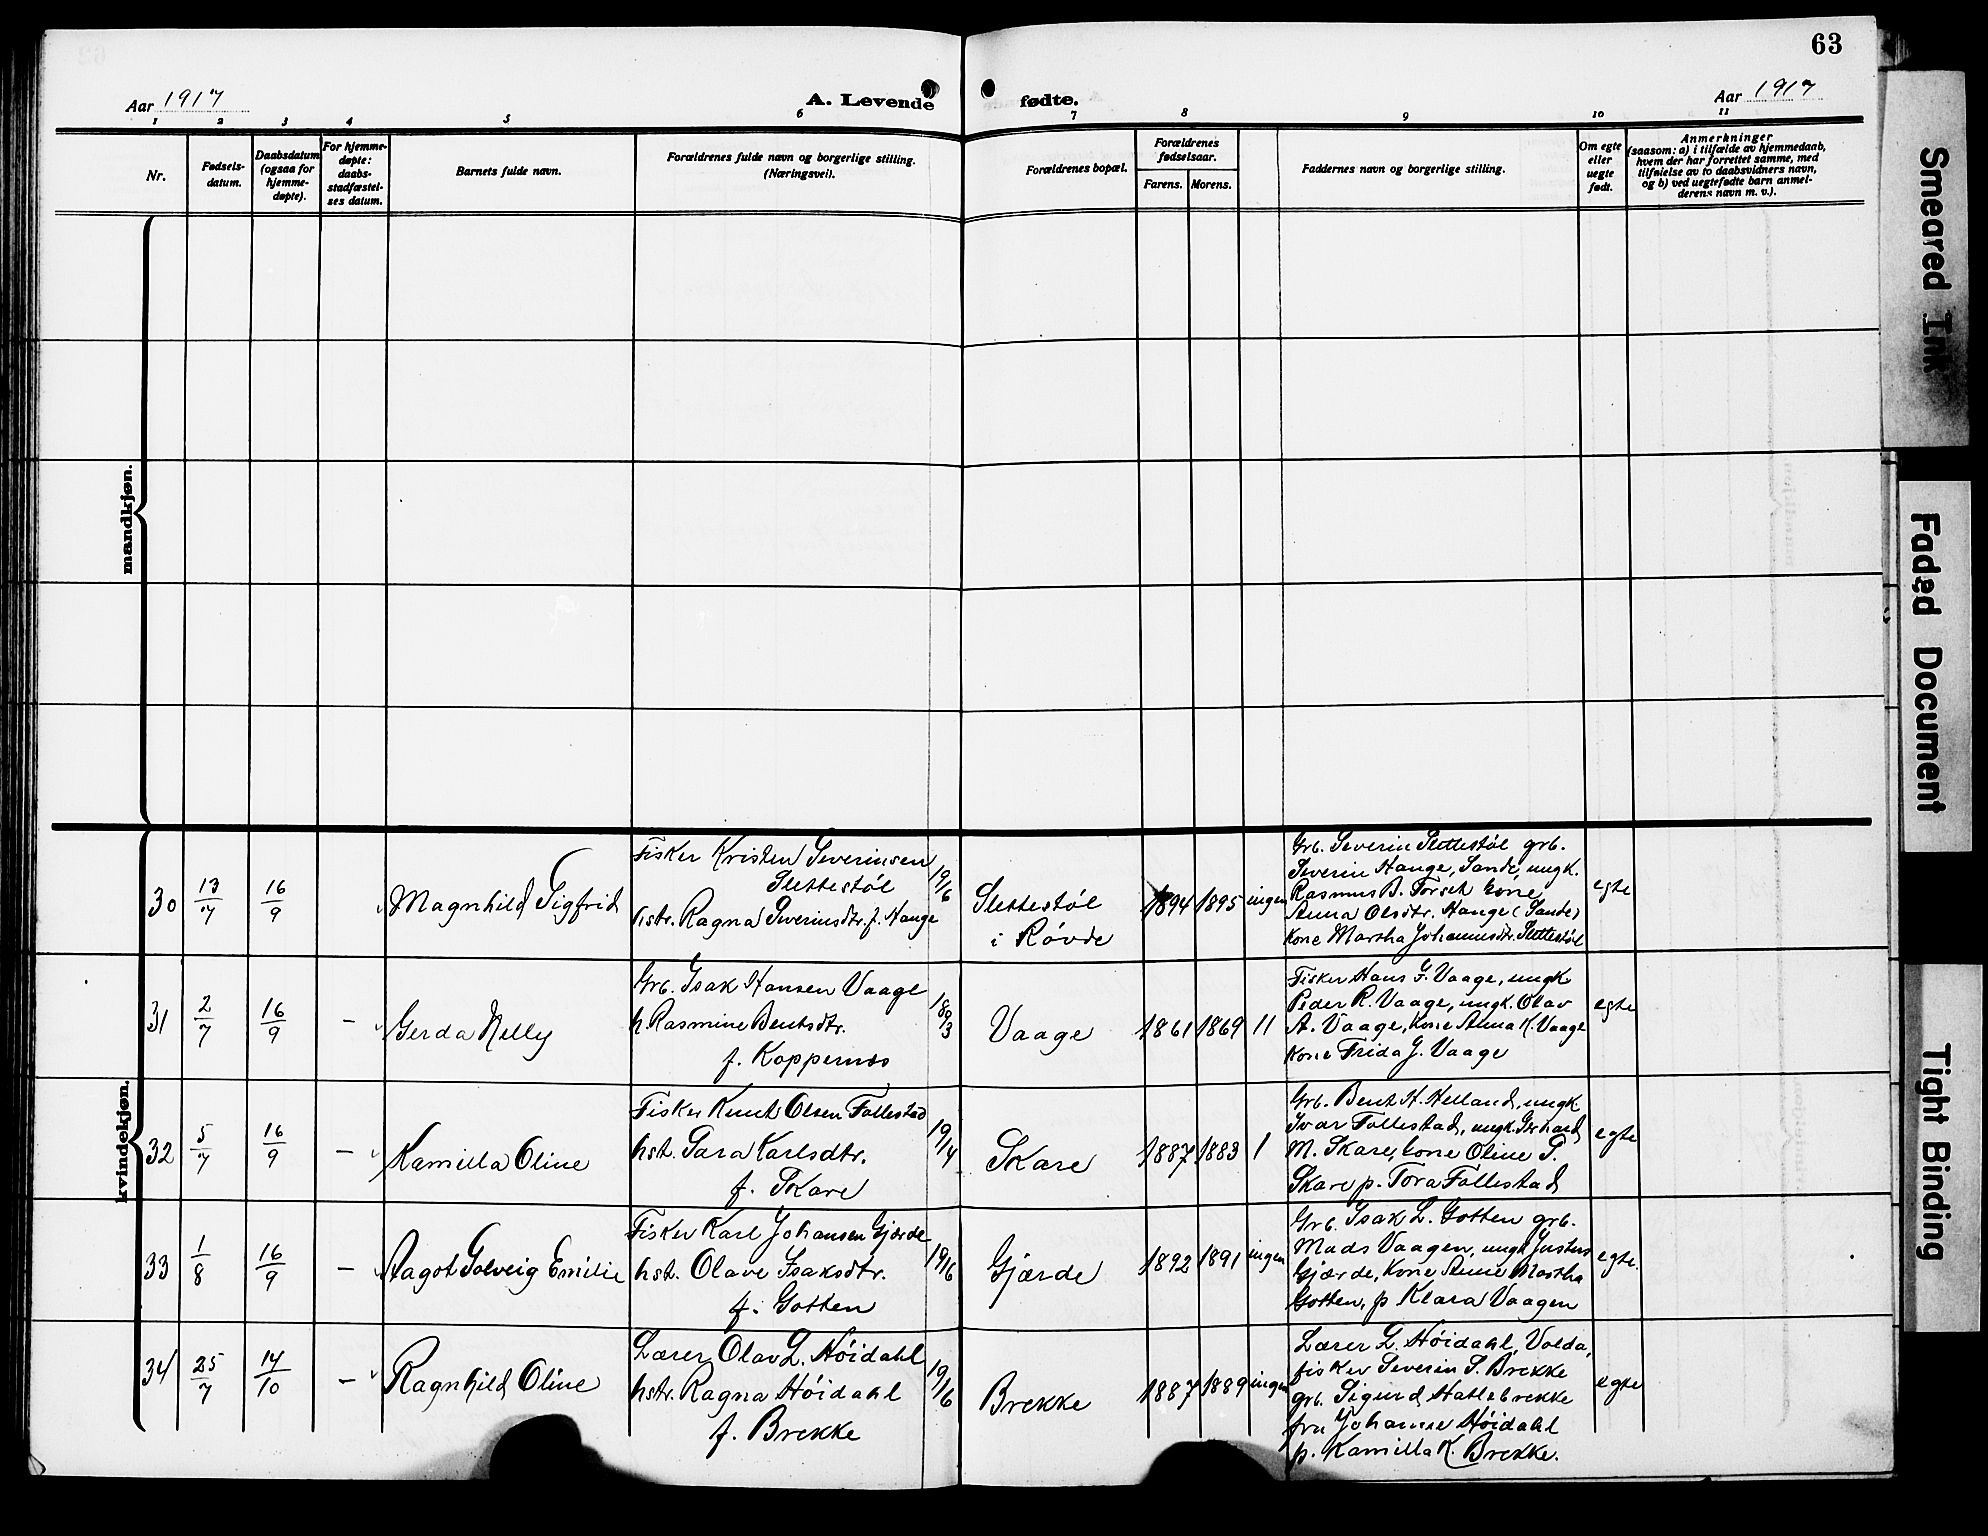 63
Aar 1917
A. Levende fødte.
Aar 1917
1 2 3 4 5 6 7 8 9 10 11
Nr.
Fødsels-
datum.
Daabsdatum
(ogsaa for
hjemme-
døpte).
For hjemme-
døpte:
daabs-
stadfæstel-
ses datum.
Barnets fulde navn.
Forældrenes fulde navn og borgerlige stilling.
(Næringsvei).
Forældrenes bopæl.
Forældrenes
fødselsaar.
Farens. Morens.
Faddernes navn og borgerlige stilling.
Om egte
eller
uegte
født.
Anmerkninger
(saasom: a) i tilfælde av hjemmedaab,
hvem der har forrettet samme, med
tilføielse av to daabsvidners navn,
og b) ved uegtefødte barn anmel-
derens navn m. v.).
mandkjøn.
kvindekjøn.
30
13/7
16/9
Magnhild Sigfrid
Fisker Kristen Severinsen
Slettestøl
hstr. Ragna Severinsdtr. f. Hauge
19/16
Slettestøl
i Rövde
1894 1895 ingen
Grb. Severin Slettestøl grb.
Severin Hauge, Sande, ungk.
Rasmus B. Forseth kone
Anna Olsdtr. Hauge (Sande)
Kone Martha Johannesdtr. Slettestøl
egte
31
2/7
16/9
-
Gerda Nelly
Grb. Isak Hansen Vaage
h Rasmine Bentsdtr.
f. Koppernæs
18/93
Vaage
1861 1869 11
Fisker Hans G. Vaage, ungk
Peder R. Vaage, ungk. Olav
A. Vaage, Kone Anna K. Vaage
Kone Frida J. Vaage
egte
32
5/7
16/9
-
Kamilla Oline
Fisker Knut Olsen Follestad
hst. Sara Karlsdtr.
f. Skare
19/14
Skare
1887 1883 1
Grb. Bent H. Helland, ungk
Ivar Follestad, ungk. Gerhard
M. Skare, kone Oline S.
Skare p. Tora Follestad
egte
33
1/8
16/9
-
Aagot Solveig Emilie
Fisker Karl Johansen Gjærde
hst. Olave Isaksdtr.
f. Gotten
19/16
Gjærde
1892 1891 ingen
Grb. Isak L. Gotten grb.
Mads Vaagen, ungk Justus
Gjærde, Kone Anne Martha
Gotten, p Klara Vaagen
egte.
34
25/7
14/10
-
Ragnhild Oline
Lærer Olav L. Höidahl
hstr. Ragna Höidahl
f. Brekke
19/16
Brekke
1887 1889 ingen
Lærer L. Höidahl, Volda,
fisker Severin S. Brekke
grb. Sigurd Hatlebrekke
fru Johanne Höidahl
p. Kamilla K. Brekke.
egte
Smeared Ink
Faded Document
Tight Binding